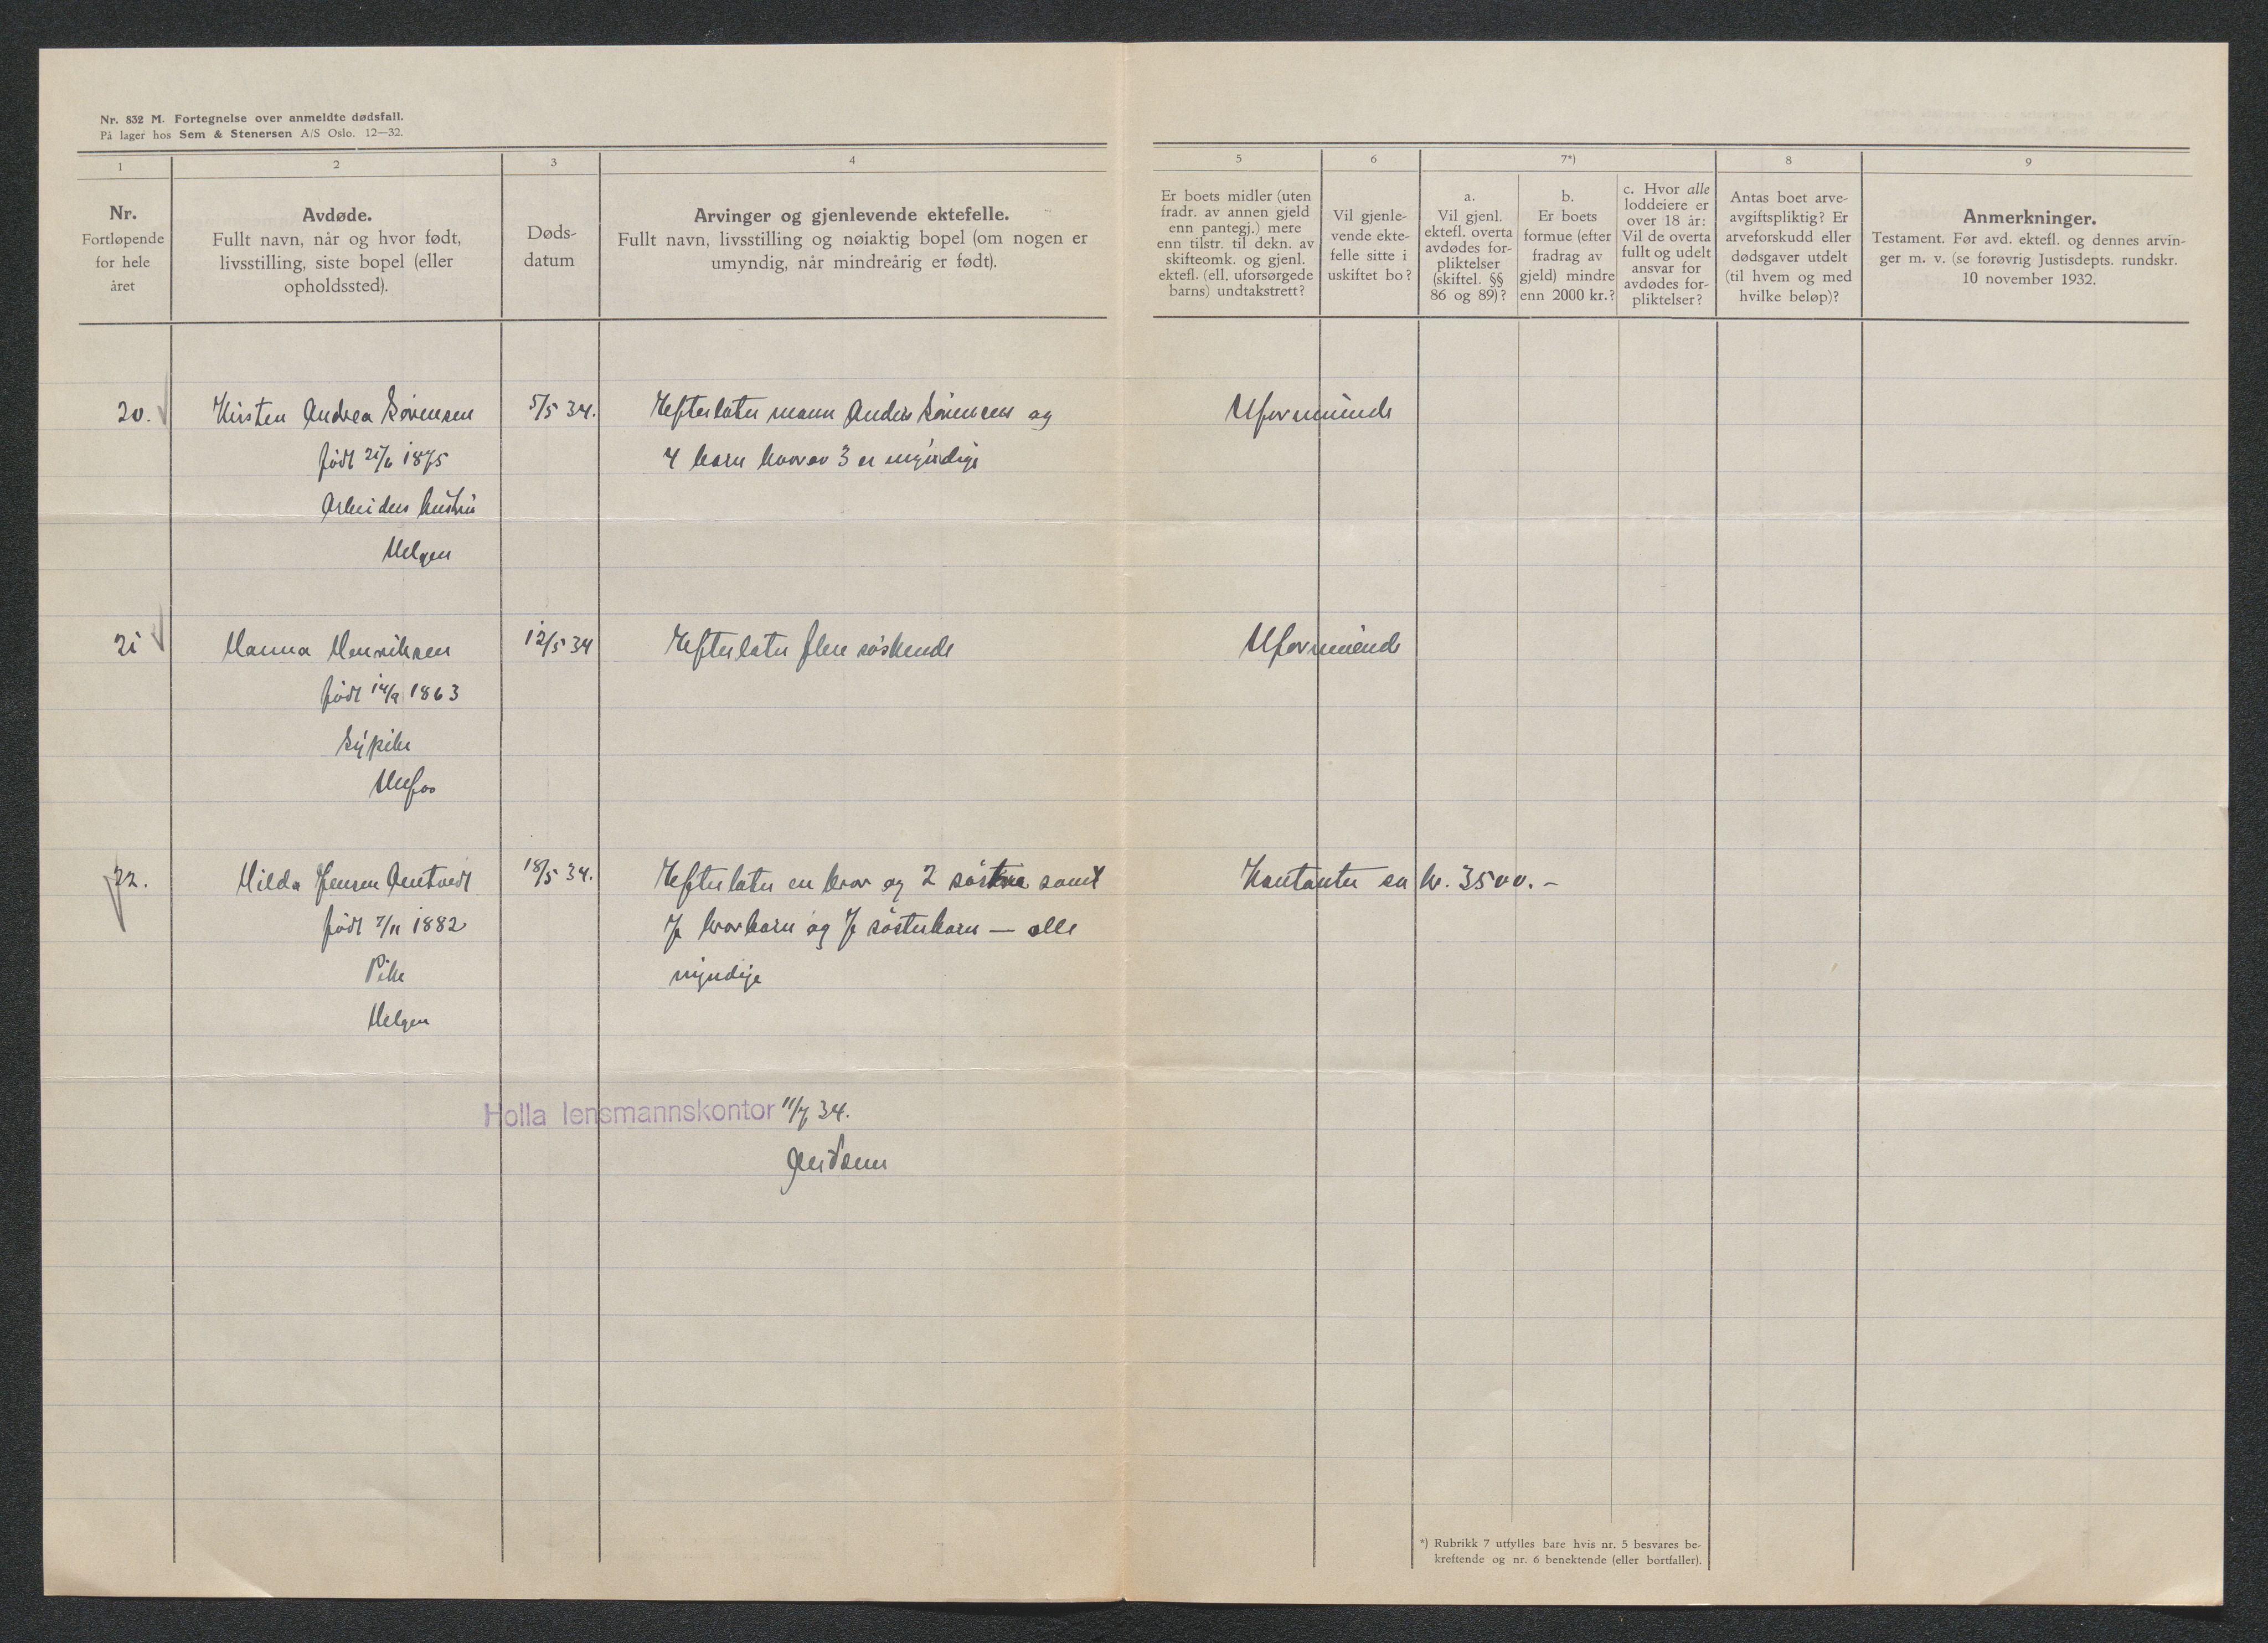 Nr. 832 M. Fortegnelse over anmeldte dødsfall.
På lager hos Sem & Stenersen A/S Oslo. 12—32.
1
2
3
4
5
6
7*)
8
9
Nr.
Fortløpende
for hele
året
Avdøde.
Fullt navn, når og hvor født,
livsstilling, siste bopel (eller
opholdssted).
Døds-
datum
Arvinger og gjenlevende ektefelle.
Fullt navn, livsstilling og nøiaktig bopel (om nogen er
umyndig, når mindreårig er født).
Er boets midler (uten
fradr. av annen gjeld
enn pantegj.) mere
enn tilstr. til dekn. av
skifteomk. og gjenl.
ektefl. (ell. uforsørgede
barns) undtakstrett?
Vil gjenle-
vende ekte-
felle sitte i
uskiftet bo?
a.
Vil gjenl.
ektefl. overta
avdødes for-
pliktelser
(skiftel. §§
86 og 89)?
b.
Er boets
formue (efter
fradrag av
gjeld) mindre
enn 2000 kr.?
c. Hvor alle
loddeiere er
over 18 år:
Vil de overta
fullt og udelt
ansvar for
avdødes for-
pliktelser?
Antas boet arve-
avgiftspliktig? Er
arveforskudd eller
dødsgaver utdelt
(til hvem og med
hvilke beløp)?
Anmerkninger.
Testament. Før avd. ektefl. og dennes arvin-
ger m. v. (se forøvrig Justisdepts. rundskr.
10 november 1932.
20. Kirsten Andrea Sørensen 5/5 34. Efterlater mann Anders Sørensen og Uformuende
født 21/6 1875 4 barn hvorav 3 er myndige
Arbeiders hustru
Helgen
21 Hanna Henriksen 12/5 34 Efterlater flere søskende Uformuende
født 14/9 1863
Sypike
Ulefos
22. Hilda Jensen 18/5 34. Efterlater en bror og 2 søstre samt Kontanter ca kr. 3500.-
født 7/11 1882 7 brorbarn og 7 søsterbarn — alle
Pike myndige
Helgen
Holla lensmannskontor 11/7 34.
*) Rubrikk 7 utfylles bare hvis nr. 5 besvares be-
kreftende og nr. 6 benektende (eller bortfaller).